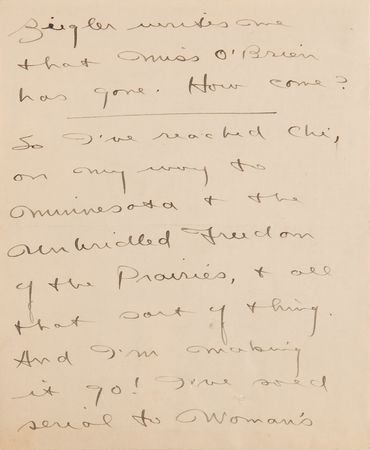 Ziegler writes me
that Miss O'Brien
has gone. How come?
So I've reached Chi,
on my way to
Minnesota & the
Unbridled Freedom
of the Prairies, & all
that sort of thing.
And I'm making
it go! I've sold
serial to Woman's